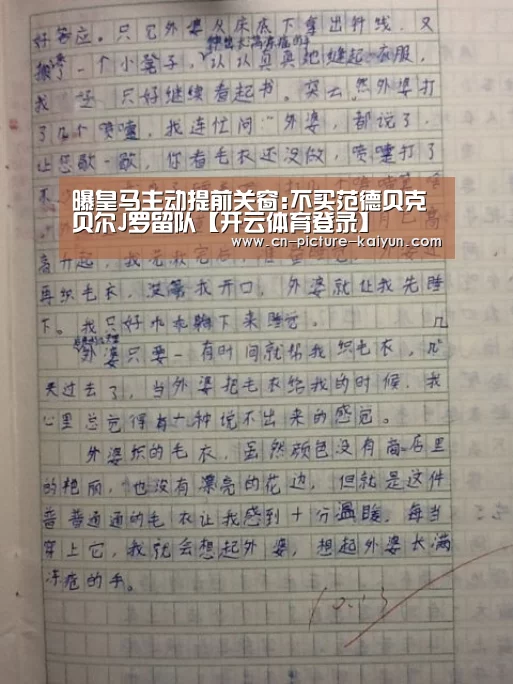 好答应。只见外婆从床底下拿出针线，又
搬了一个小凳子，认认真真地缝起衣服，
我只好继续看起书。突然外婆打
了几个喷嚏，我连忙问："外婆，都说了，
让您歇一歇，你看毛衣还没做，喷嚏打了
曝皇马主动提前关窗:不买范德贝克
贝尔J罗留队【开云体育登录】
www.cn-picture-kaiyun.com
再织毛衣，没等我开口，外婆就让我先睡
下。我只好乖乖躺下来睡觉。
外婆只要一有时间就帮我织毛衣，几
天过去了，当外婆把毛衣给我的时候，我
心里总觉得有一种说不出来的感觉。
外婆织的毛衣，虽然颜色没有商店里
的艳丽，也没有漂亮的花边，但就是这件
普普通通的毛衣让我感到十分温暖，每当
穿上它，我就会想起外婆，想起外婆长满
冻疮的手。
10.13